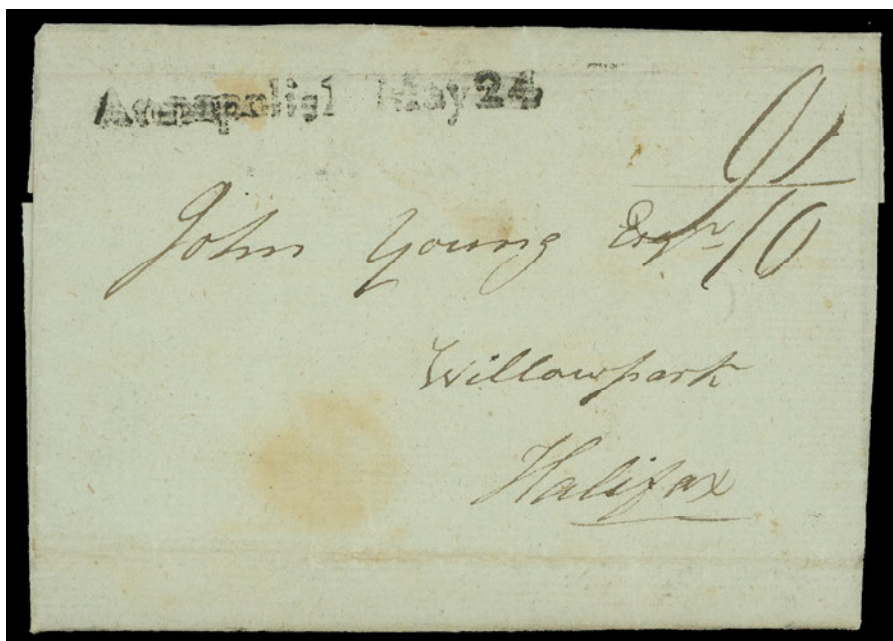 Annapolis May 24
John Young Esqr
Willowpark
Halifax